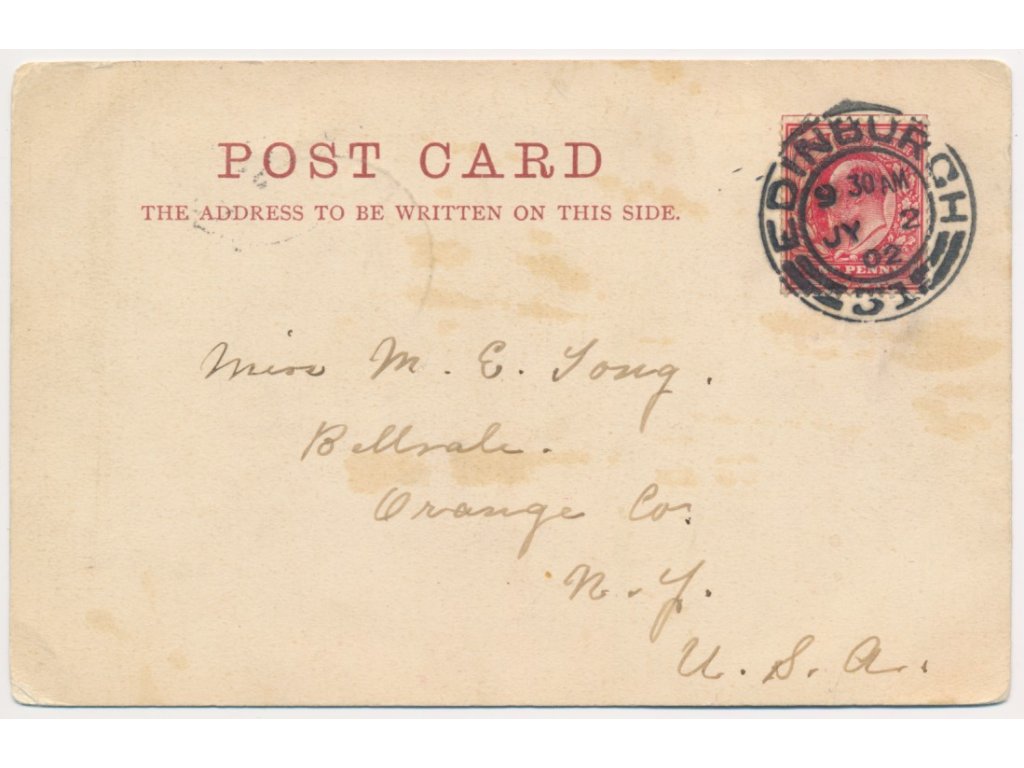 POST CARD
THE ADDRESS TO BE WRITTEN ON THIS SIDE.
EDINBURGH
9 30 AM
JY 2
02
PENNY
Miss M. E. Song.
Bellvale.
Orange Co.
N. Y.
U. S. A.